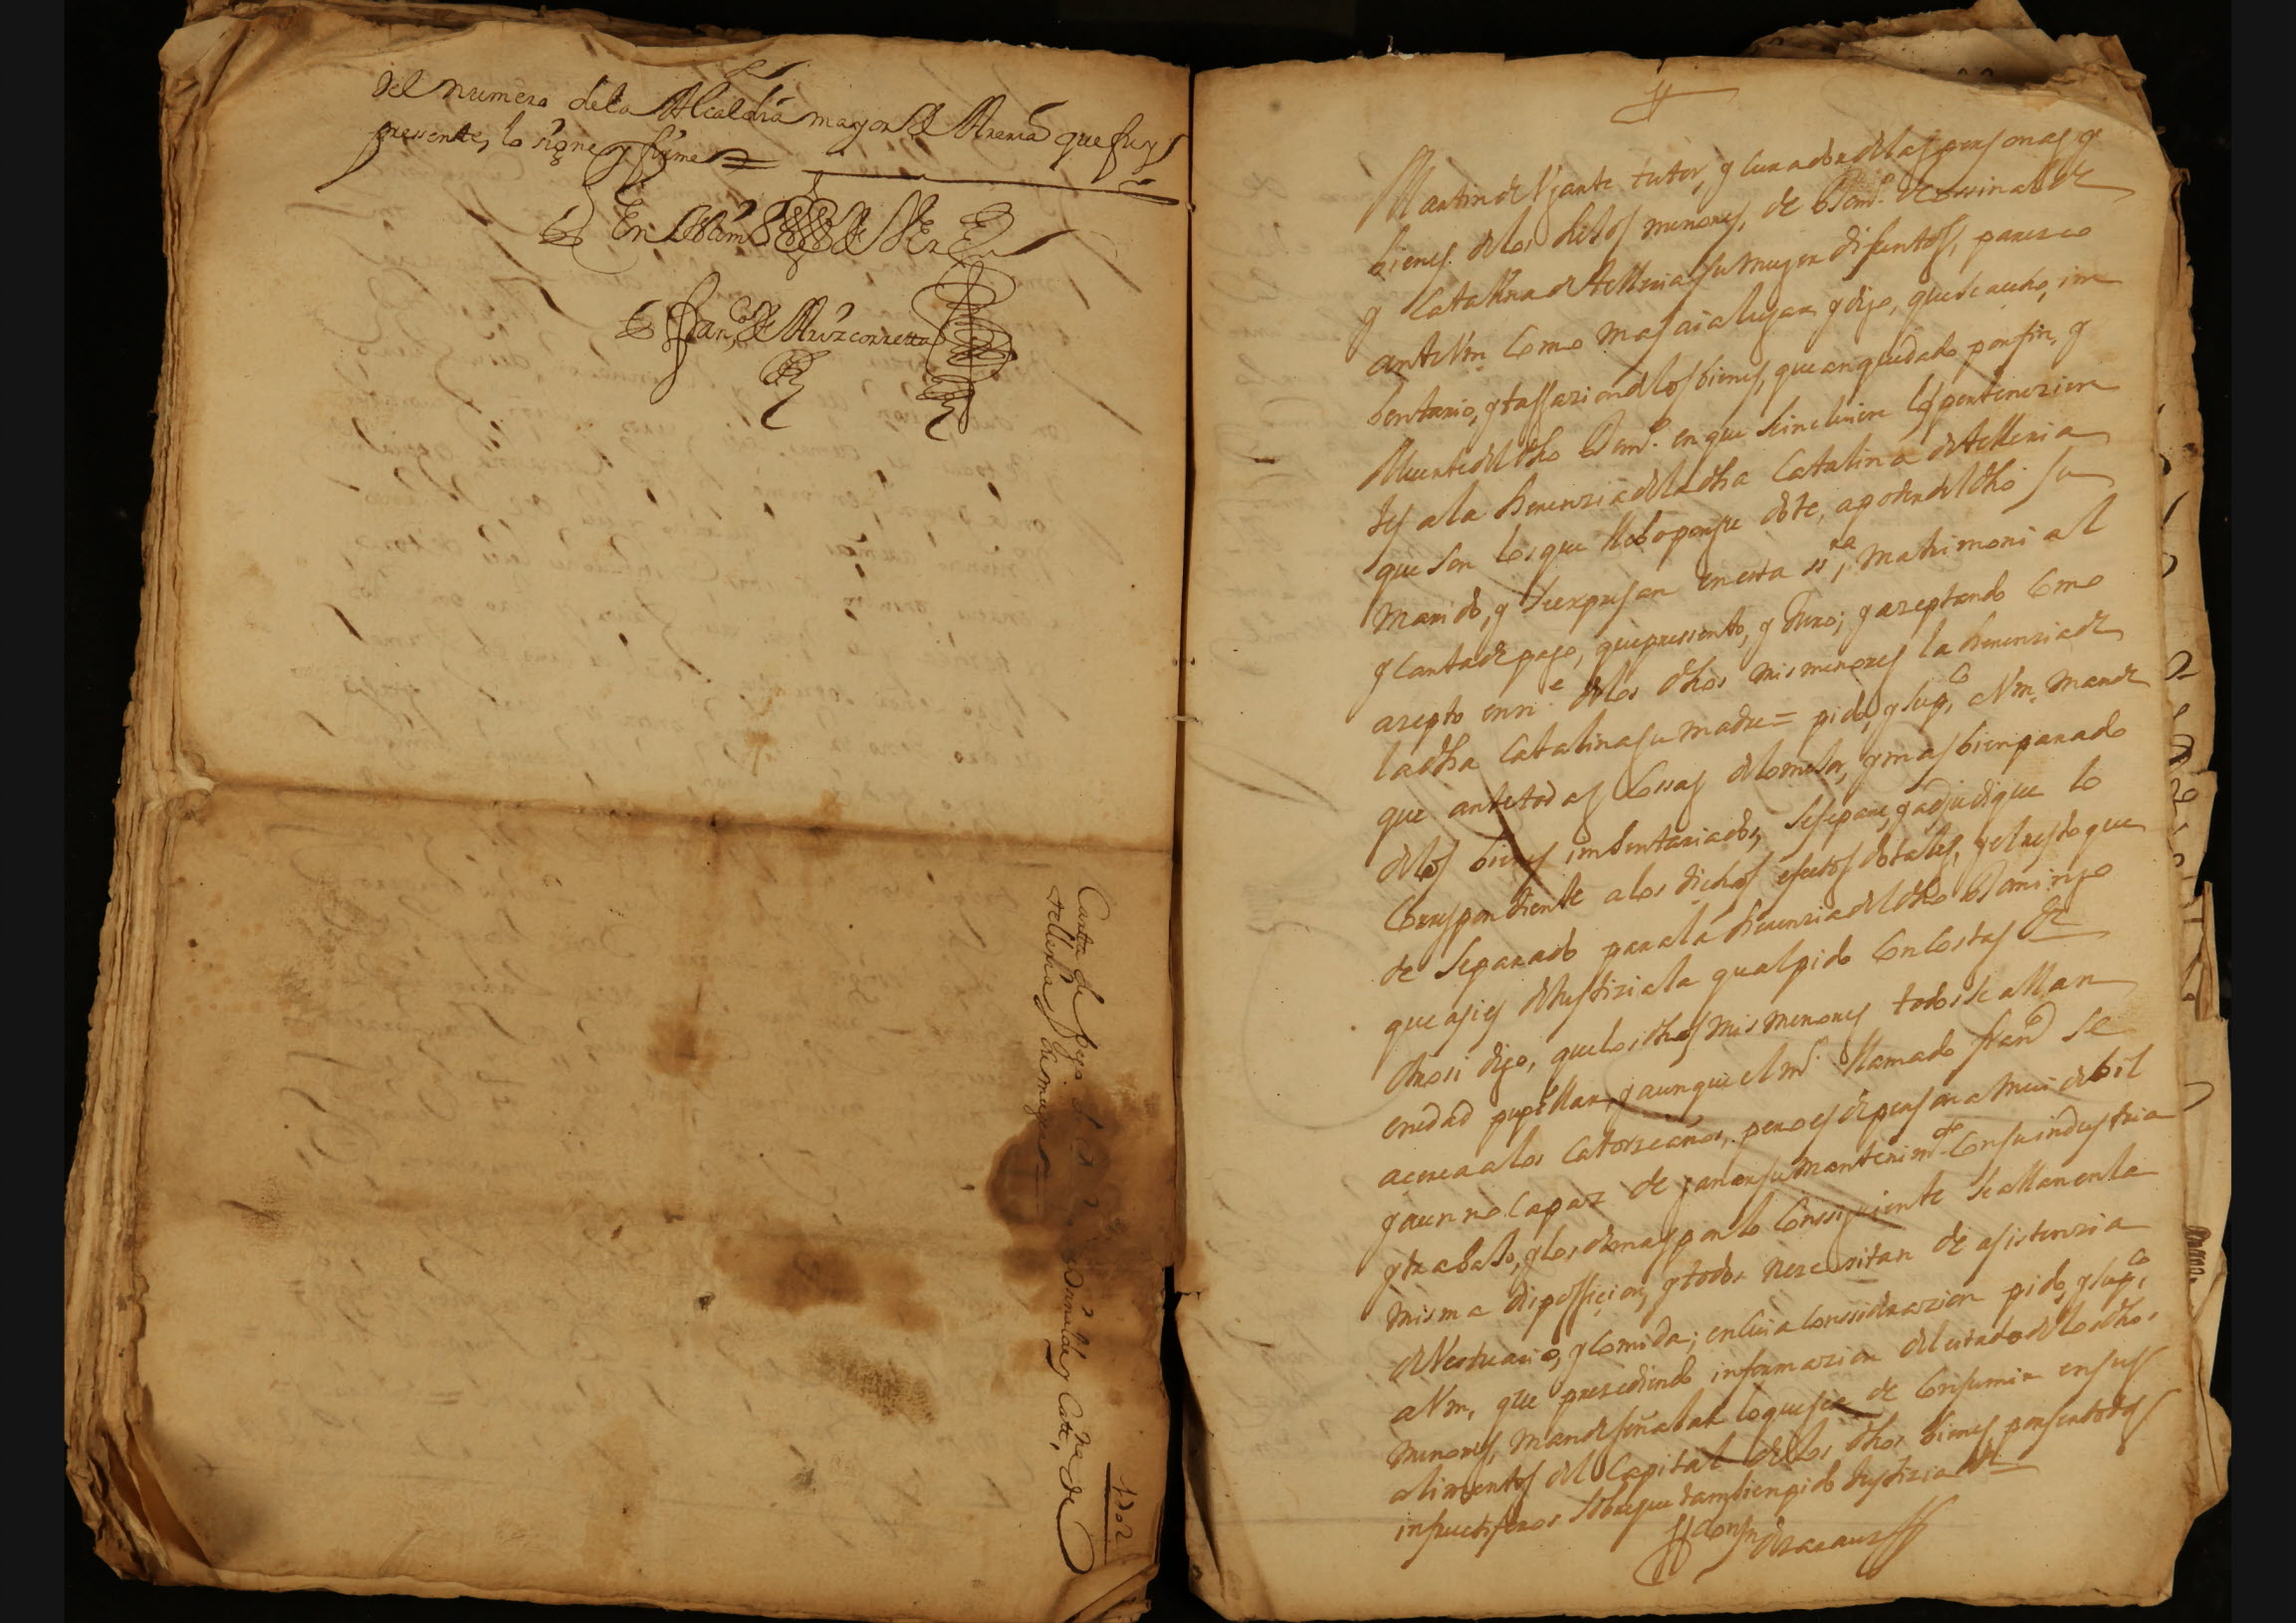 del numero de la Alcaldia mayor de Areria que fuy
pressente, lo signe y firme =
En testim de Ver
Franco de Aruzcorreta
Carta de pago de Dom
Telleria su muger
Oruinalde y Catna de
1702
Martin de Vgarte tutor, y curador de las personas y
bienes de los hixos menores, de Domo de Oruinalde
y Catalina de Telleria su muger difuntos, paresco
ante Vm como mas aia lugar y digo, que se a echo, im
bentario, y tassazion de los bienes, que an quedado por fin, y
Muerte del dho Domo en que se incluien los pertenezien
tes a la herenzia de la dha Catalina de Telleria
que son los que llebo por su dote, a poder del dho su
Marido, y se expresan en esta ssra matrimonial
y carta de pago, que pressento, y Juro; y azeptando como
azepto en ne de los dhos mis menores la herenzia de
la dha Catalina su madre = pido, y supco a Vm. mande
que ante todas cossas de lo mexor, y mas bien parado
de los bienes imbentariados, se separe, y adjudique lo
Correspondiente a los dichos efectos dotales, y el resto que
de separado para la herenzia del dho Domingo
que asi es de Justizia la qual pido con costas &
Otrosi digo, que los dhos mis menores todos se allan
en edad pupillar, y aunque el mr llamado Franco se
acerca a los catorze años, pero es de persona mui debil
y aun no capaz de ganar su mantenimto con su industria
y trabaxo, y los demas por lo conssiguiente se allan en la
misma dispossicion, y todos nezessitan de asistenzia
de Vestuario, y comida; en cuia conssiderazion pido, y supco
a Vm, que prezediendo informazion del estado de los dhos
menores, mande señalar lo que se a de consumir en sus
alimentos del Capital de los dhos bienes por ser todos
infructiferos sobre que tambien pido Justizia &